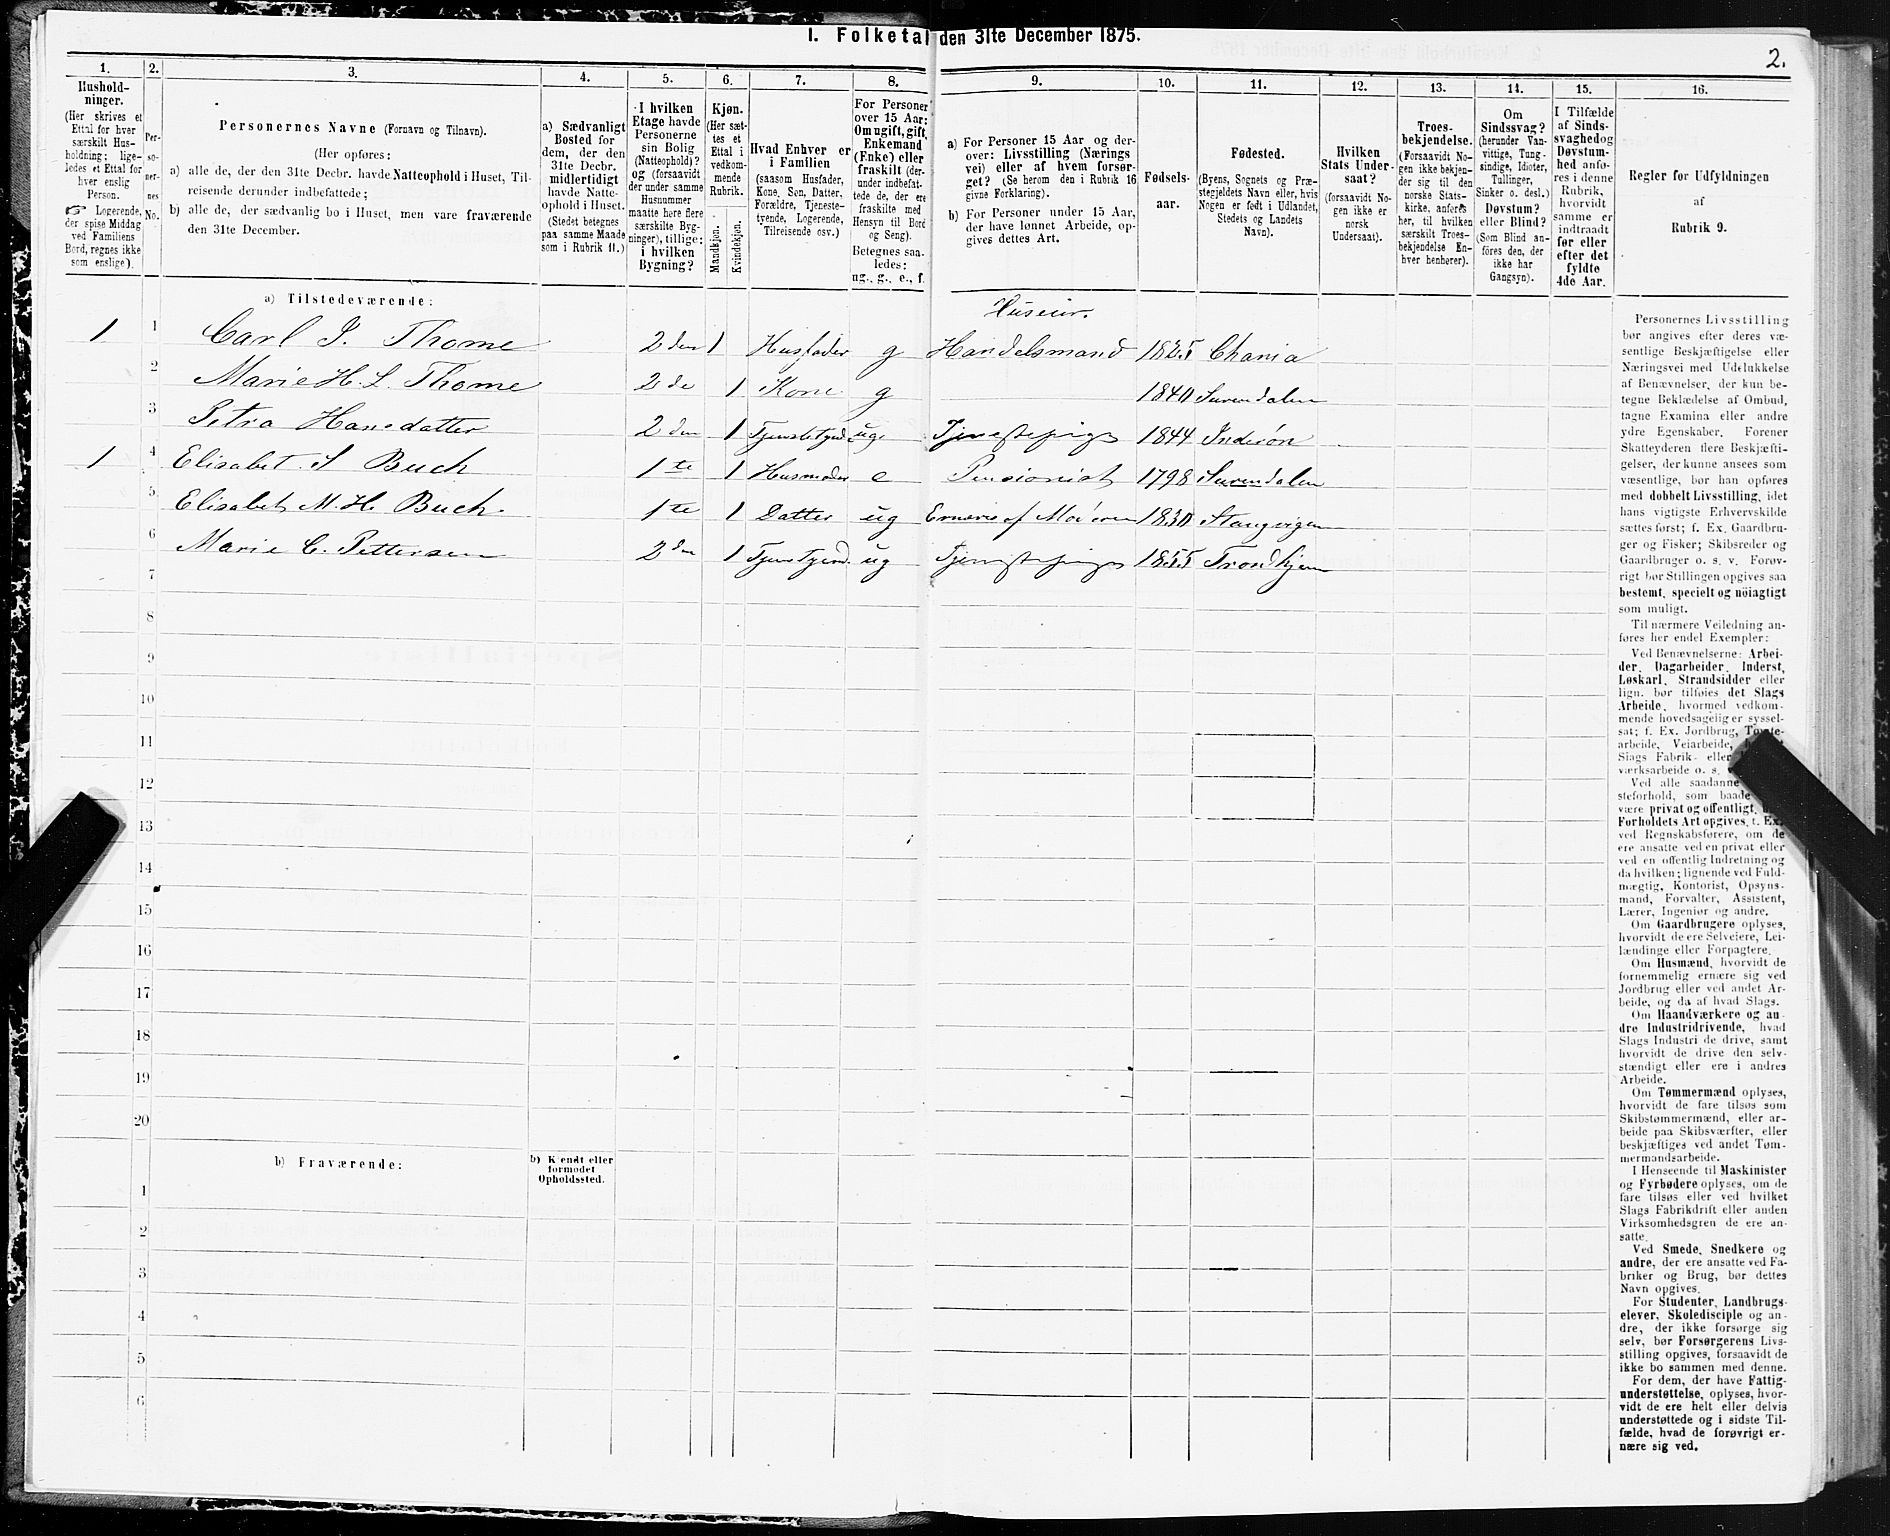 I. Folketal den 31te December 1875.
2.
1. 2. 3. 4. 5. 6. 7. 8. 9. 10. 11. 12. 13. 14. 15. 16.
Hushold-
ninger.
(Her skrives et
Ettal for hver
særskilt Hus-
holdning; lige-
ledes et Ettal for
hver enslig
Person.
☞ Logerende,
der spise Middag
ved Familiens
Bord, regnes ikke
som enslige).
Per-
so-
ner-
nes
No.
Personernes Navne (Fornavn og Tilnavn).
(Her opføres:
a) alle de, der den 31te Decbr. havde Natteophold i Huset, Til-
reisende derunder indbefattede;
b) alle de, der sædvanlig bo i Huset, men vare fraværende
den 31te December.
a) Sædvanligt
Bosted for
dem, der den
31te Decbr.
midlertidigt
havde Natte-
ophold i Huset.
(Stedet betegnes
paa samme Maade
som i Rubrik 11.)
I hvilken
Etage havde
Personerne
sin Bolig
(Natteophold)?
og (forsaavidt
der under samme
Husnummer
maatte høre flere
særskilte Byg-
ninger), tillige:
i hvilken
Bygning?
Kjøn.
(Her sæt-
tes et
Ettal i
vedkom-
mende
Rubrik.
Mandkjøn.
Kvindekjøn.
Hvad Enhver er
i Familien
(saasom Husfader,
Kone, Søn, Datter,
Forældre, Tjeneste-
tyende, Logerende,
Tilreisende osv.)
For Personer
over 15 Aar:
Om ugift, gift,
Enkemand
(Enke) eller
fraskilt (der-
under indbefat-
tede de, der ere
fraskilte med
Hensyn til Bord
og Seng).
Betegnes saa-
ledes:
ug., g., e., f.
a) For Personer 15 Aar og der-
over: Livsstilling (Nærings
vei) eller af hvem forsør-
get? (Se herom den i Rubrik 16
givne Forklaring).
b) For Personer under 15 Aar,
der have lønnet Arbeide, op-
gives dettes Art.
Fødsels-
aar.
Fødested.
(Byens, Sognets og Præ-
stegjeldets Navn eller, hvis
Nogen er født i Udlandet,
Stedets og Landets
Navn).
Hvilken
Stats Under-
saat?
(forsaavidt No-
gen ikke er
norsk
Undersaat).
Troes-
bekjendelse.
(Forsaavidt No-
gen ikke bekjen-
der sig til den
norske Stats-
kirke, anføres
her, til hvilken
særskilt Troes-
bekjendelse En-
hver henhører).
Om
Sindssvag?
(herunder Van-
vittige, Tung-
sindige, Idioter,
Tullinger,
Sinker o. desl.)
Døvstum?
eller Blind?
(Som Blind an-
føres den, der
ikke har
Gangsyn).
I Tilfælde
af Sinds-
svaghed og
Døvstum-
hed anfø-
res i denne
Rubrik,
hvorvidt
samme er
indtraadt
før eller
efter det
fyldte
4de Aar.
Regler for Udfyldningen
af
Rubrik 9.
a) Tilstedeværende:
Huseier.
1 1 Carl J. Thome 2den 1 Husfader g Handelsmand 1825 Chania
2 Marie H. L. Thome 2de 1 Kone g 1840 Surendalen
3 Petra Hansdatter 2den 1 ug Tjenestepige 1844 Inderøn
1 4 Elisabet S Buch 1te 1 Husmoder e Pensionist 1798 Surendalen
5 Elisabet M. H. Buch 1te 1 Datter ug Erneres af Moderen 1830 Stangvigen
6 Marie C. Pettersen 2den 1 Tjenstyend. ug Tjenestepige 1855 Trondhjem
7
8
9
10
11
12
13
14
15
16
17
18
19
20
b) Fraværende:
b) Kjendt eller
formodet
Opholdssted.
1
2
3
4
5
6
Personernes Livsstilling
bør angives efter deres væ-
sentlige Beskjæftigelse eller
Næringsvei med Udelukkelse
af Benævnelser, der kun be-
tegne Beklædelse af Ombud,
tagne Examina eller andre
ydre Egenskaber. Forener
Skatteyderen flere Beskjæfti-
gelser, der kunne ansees som
væsentlige, bør han opføres
med dobbelt Livsstilling, idet
hans vigtigste Erhvervskilde
sættes først; f. Ex. Gaardbru-
ger og Fisker; Skibsreder og
Gaardbruger o. s. v. Forøv-
rigt bør Stillingen opgives saa
bestemt, specielt og nöiagtigt
som muligt.
Til nærmere Veiledning an-
føres her endel Exempler:
Ved Benævnelserne: Arbei-
der, Dagarbeider, Inderst,
Løskarl, Strandsidder eller
lign. bør tilføies det Slags
Arbeide, hvormed vedkom-
mende hovedsagelig er syssel-
sat; f. Ex. Jordbrug, Tomte-
arbeide, Veiarbeide,
Slags Fabrik- eller
værksarbeide o. s. v.
Ved alle saadanne
steforhold, som baade
være privat og offentligt,
Forholdets Art opgives, f. Ex.
ved Regnskabsførere, om de
ere ansatte ved en privat eller
ved en offentlig Indretning og
da hvilken; lignende ved Fuld-
mægtig, Kontorist, Opsyns-
mand, Forvalter, Assistent,
Lærer, Ingeniør og andre.
Om Gaardbrugere oplyses,
hvorvidt de ere Selveiere, Lei-
lændinge eller Forpagtere.
Om Husmænd, hvorvidt de
fornemmelig ernære sig ved
Jordbrug eller ved andet Ar-
beide, og da af hvad Slags.
Om Haandværkere og an-
dre Industridrivende, hvad
Slags Industri de drive, samt
hvorvidt de drive den selv-
stændigt eller ere i andres
Arbeide.
Om Tømmermænd oplyses,
hvorvidt de fare tilsøs som
Skibstømmermænd, eller ar-
beide paa Skibsværfter, eller
beskjæftiges ved andet Tøm-
mermandsarbeide.
I Henseende til Maskinister
og Fyrbødere oplyses, om de
fare tilsøs eller ved hvilket
Slags Fabrikdrift eller anden
Virksomhedsgren de ere an-
satte.
Ved Smede, Snedkere og
andre, der ere ansatte ved Fa-
briker og Brug, bør dettes
Navn opgives.
For Studenter, Landbrugs-
elever, Skoledisciple og an-
dre, der ikke forsørge sig
selv, bør Forsørgerens Livs-
stilling opgives, forsaavidt de
ikke bo sammen med denne.
For dem, der have Fattig-
understøttelse, oplyses, hvor-
vidt de ere helt eller delvis
understøttede og i sidste Til-
fælde, hvad de forøvrigt er-
nære sig ved.